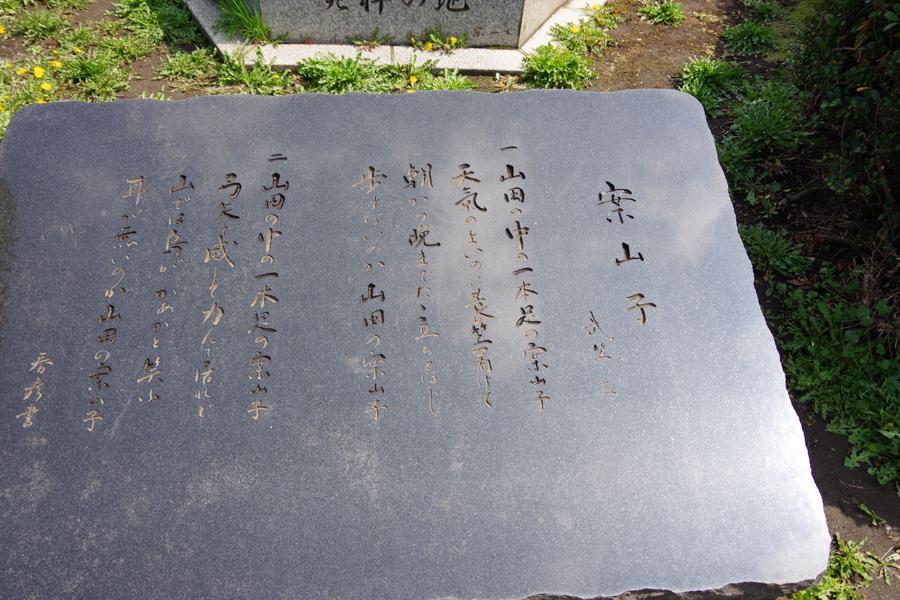 発祥の地
案山子
武笠 三
一 山田の中の一本足の案山子
天気のよいのに蓑笠着けて
朝から晩までたゞ立ちどほし
歩けないのか山田の案山子
二 山田の中の一本足の案山子
弓矢で威して力んで居れど
山では烏がかあかと笑ふ
耳が無いのか山田の案山子
春彦書